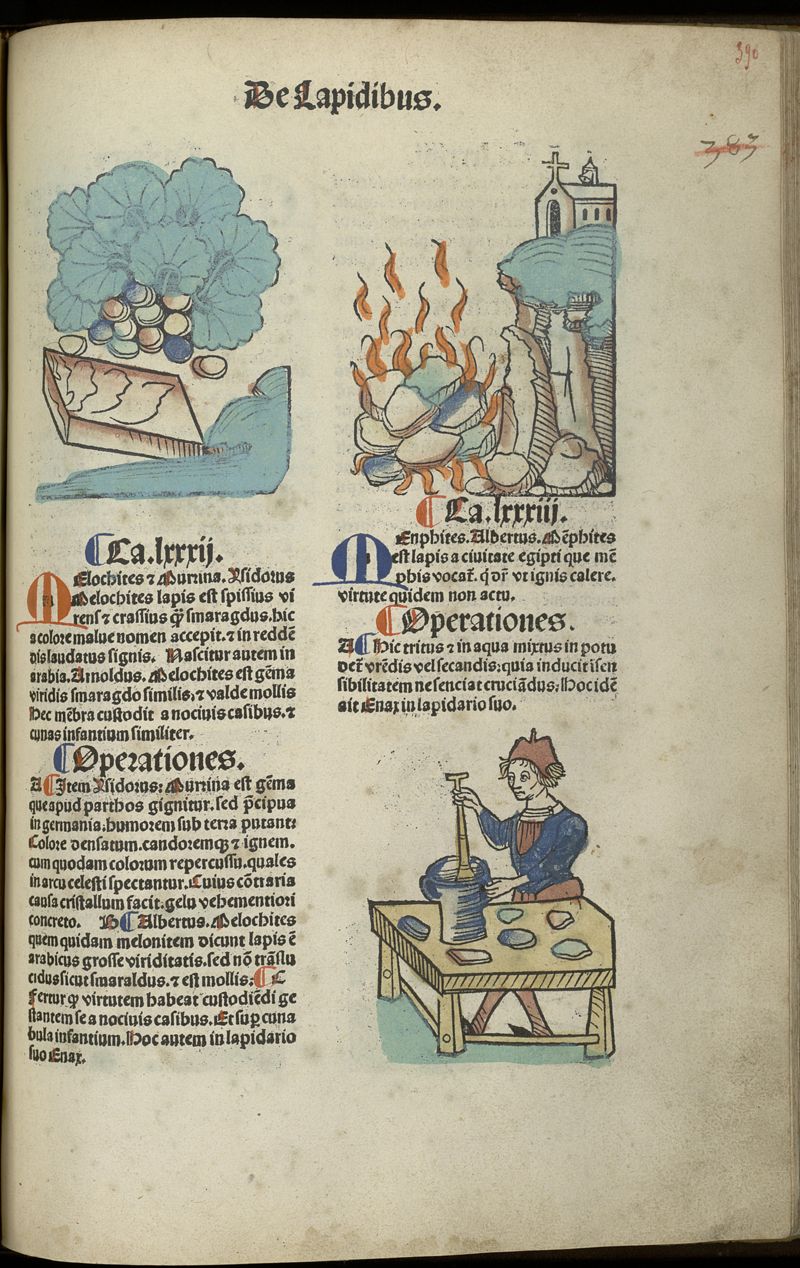 390
De Lapidibus.
383
Ca.lxxxij.
MElochites ⁊ Murrina. Ysidorus
Melochites lapis est spissius vi
rens ⁊ crassius q̃ smaragdus. hic
a colore malue nomen accepit. ⁊ in reddẽ
dis laudatus signis. Nascitur autem in
arabia. Arnoldus. Melochites est gẽma
viridis smaragdo similis, ⁊ valde mollis
Hec mẽbra custodit a nociuis casibus. ⁊
cunas infantium similiter.
Operationes.
A Item Ysidorus: Murrina est gẽma
que apud parthos gignitur. sed p̃cipua
in germania. humorem sub terra putant:
Colore densatum. candoremq̃ ⁊ ignem.
cum quodam colorum repercussu. quales
in arcu celesti spectantur. Cuius cõtraria
causa cristallum facit. gelu vehementiori
concreto. B Albertus. Melochites
quem quidam melonitem dicunt lapis ẽ
arabicus grosse viriditatis. sed nõ trãslu
cidus sicut smaraldus. ⁊ est mollis: C
Fertur ꝙ virtutem habeat custodiẽdi ge
stantem se a nociuis casibus. Et sup̱ cuna
bula infantium. Hoc autem in lapidario
suo Enax.
Ca.lxxxiij.
MEnphites. Albertus. Mẽphites
est lapis a ciuitate egipti que mẽ
phis vocat̃. q̃ dr̃ vt ignis calere.
virtute quidem non actu.
Operationes.
A Hic tritus ⁊ in aqua mixtus in potu
det̃ vrẽdis vel secandis: quia inducit isen
sibilitatem ne senciat cruciãdus: Hoc idẽ
ait Enax in lapidario suo.